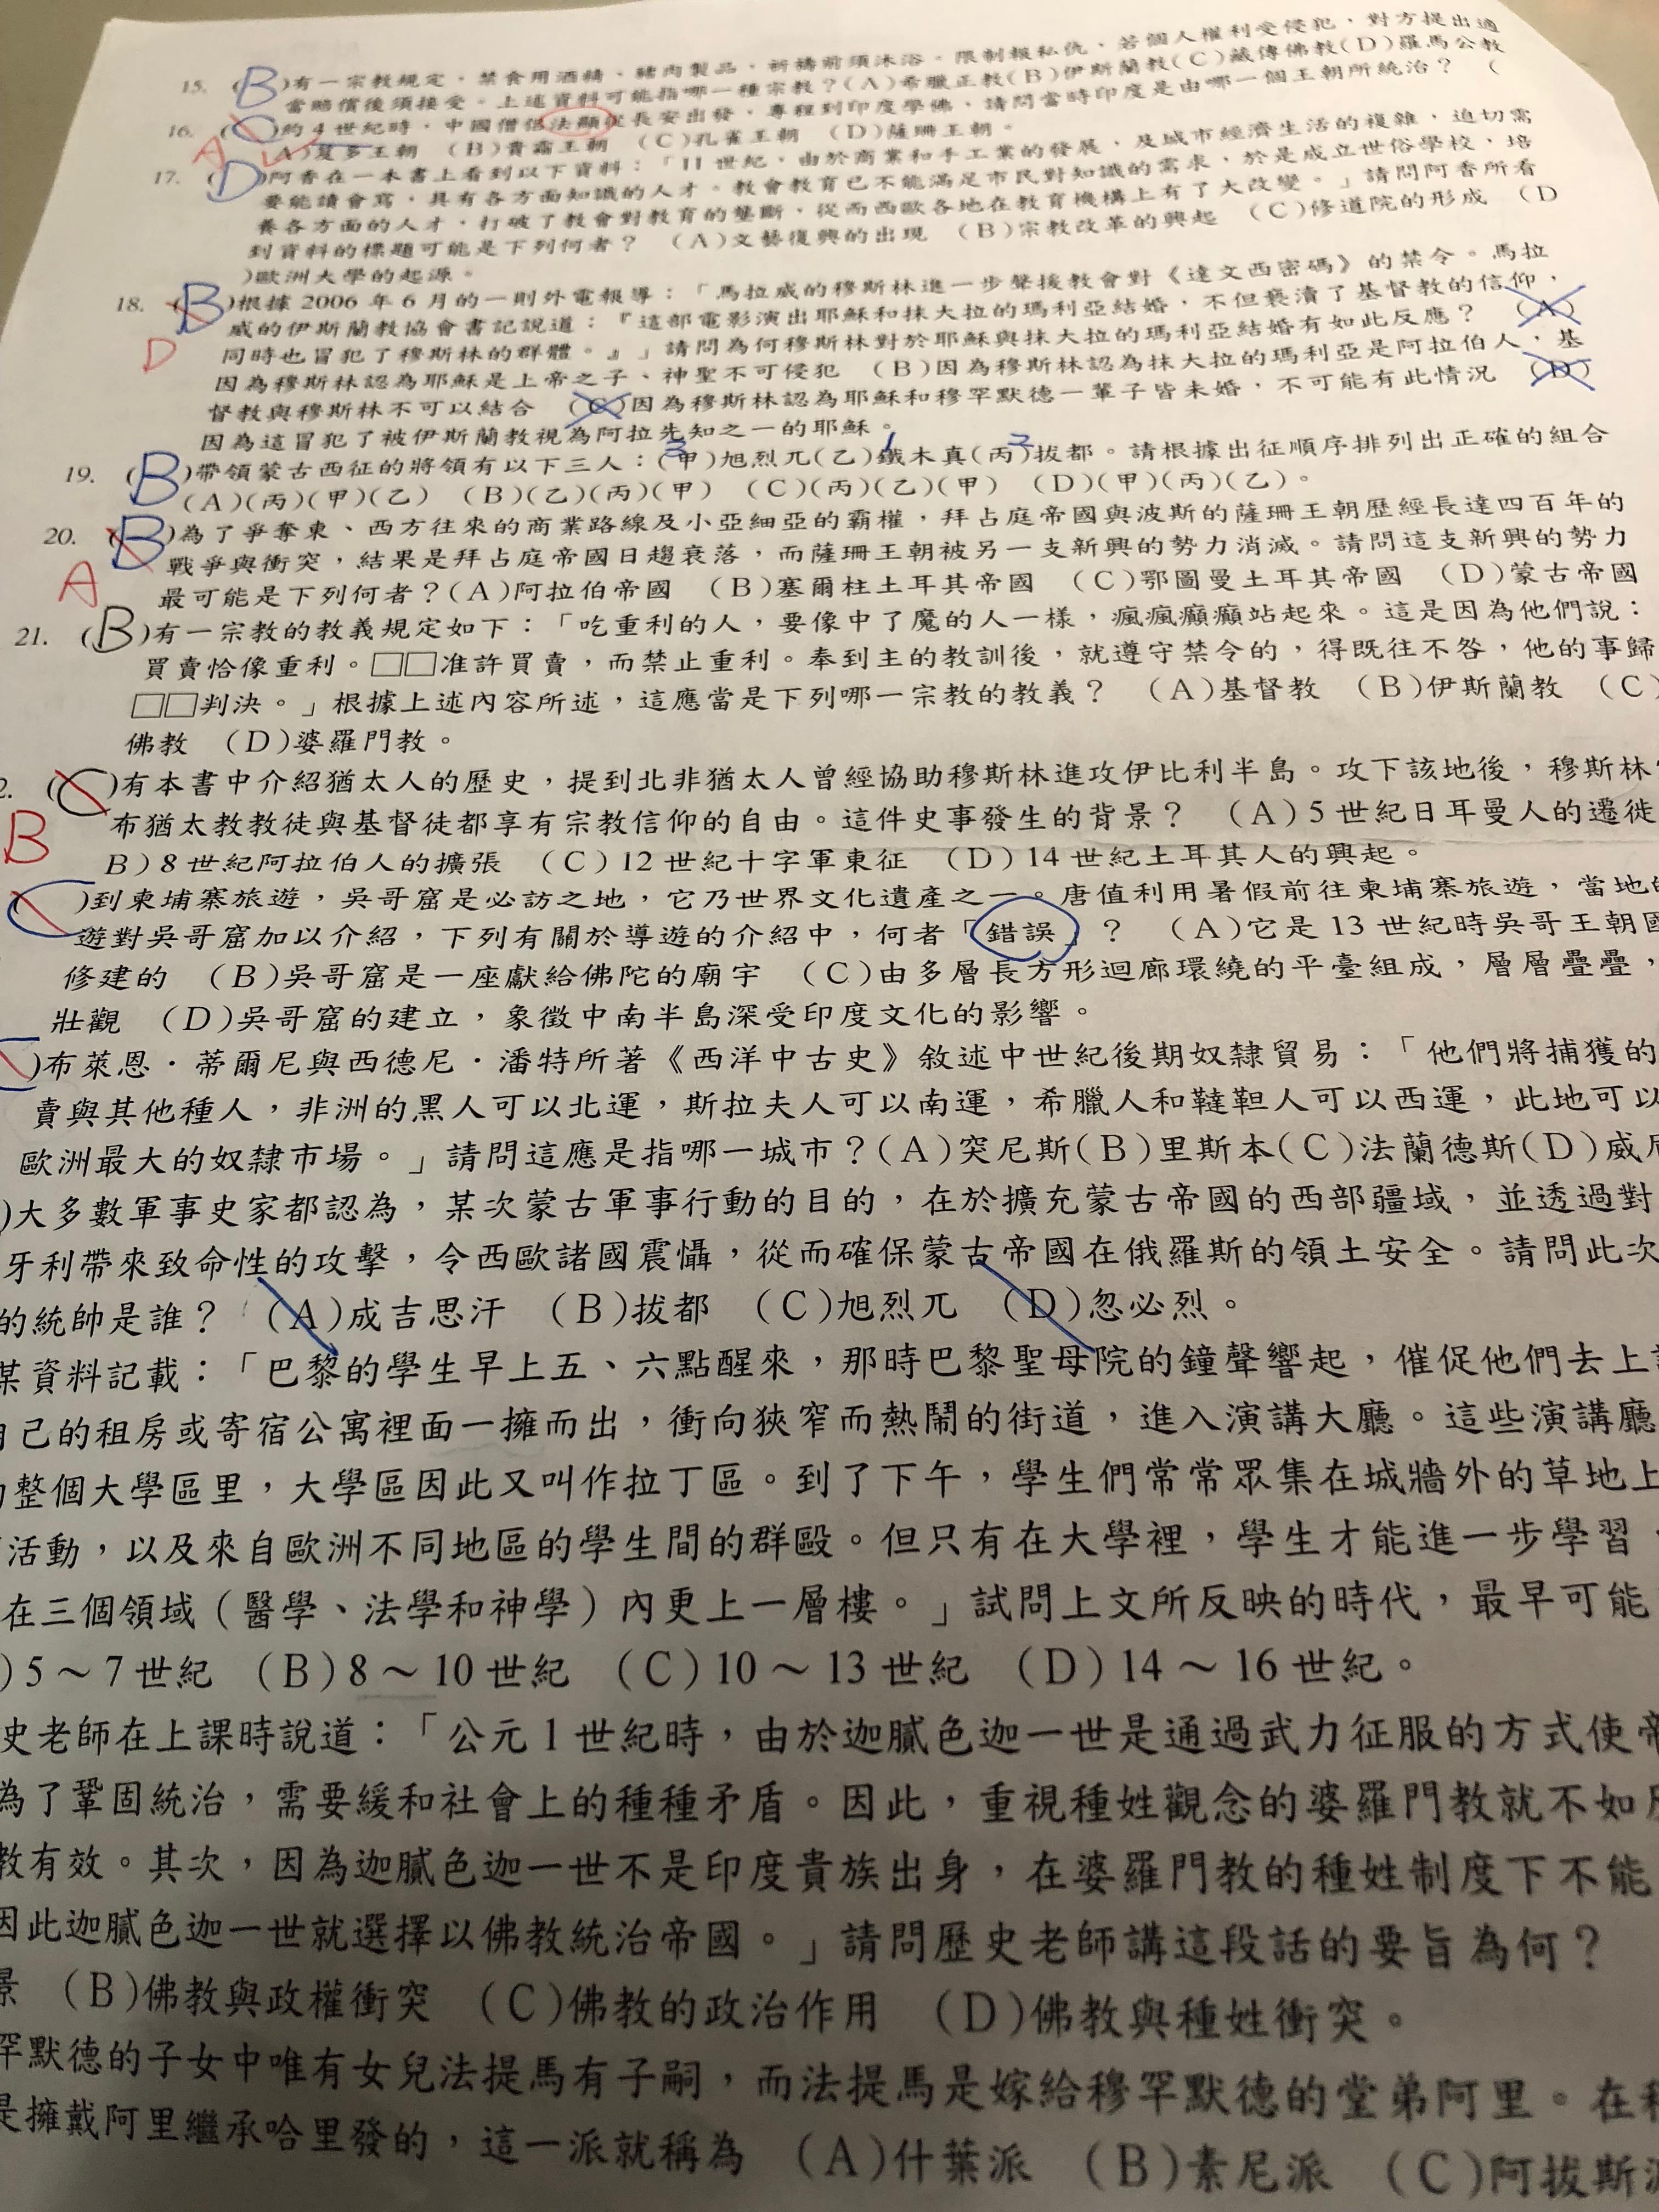 15. (B)有一宗教規定，禁食用酒精、豬肉製品，祈禱前須沐浴，限制報私仇，若個人權利受侵犯，對方提出適
當賠償後須接受。上述資料可能指哪一種宗教？(A)希臘正教(B)伊斯蘭教(C)藏傳佛教(D)羅馬公教
16. (C)約4世紀時，中國僧侶法顯從長安出發，專程到印度學佛，請問當時印度是由哪一個王朝所統治？ (
A
A)笈多王朝 (B)貴霜王朝 (C)孔雀王朝 (D)薩珊王朝。
17. (D)阿香在一本書上看到以下資料：「11世紀，由於商業和手工業的發展，及城市經濟生活的複雜，迫切需
要能讀會寫，具有各方面知識的人才。教會教育已不能滿足市民對知識的需求，於是成立世俗學校，培
養各方面的人才，打破了教會對教育的壟斷，從而西歐各地在教育機構上有了大改變。」請問阿香所看
到資料的標題可能是下列何者？ (A)文藝復興的出現 (B)宗教改革的興起 (C)修道院的形成 (D
)歐洲大學的起源。
18. (B)根據2006年6月的一則外電報導：「馬拉威的穆斯林進一步聲援教會對《達文西密碼》的禁令。馬拉
威的伊斯蘭教協會書記說道：『這部電影演出耶穌和抹大拉的瑪利亞結婚，不但褻瀆了基督教的信仰，
D
同時也冒犯了穆斯林的群體。』」請問為何穆斯林對於耶穌與抹大拉的瑪利亞結婚有如此反應？ (A)
因為穆斯林認為耶穌是上帝之子、神聖不可侵犯 (B)因為穆斯林認為抹大拉的瑪利亞是阿拉伯人，基
督教與穆斯林不可以結合 (C)因為穆斯林認為耶穌和穆罕默德一輩子皆未婚，不可能有此情況 (D)
因為這冒犯了被伊斯蘭教視為阿拉先知之一的耶穌。
3 1 2
19. (B)帶領蒙古西征的將領有以下三人：(甲)旭烈兀(乙)鐵木真(丙)拔都。請根據出征順序排列出正確的組合
(A)(丙)(甲)(乙) (B)(乙)(丙)(甲) (C)(丙)(乙)(甲) (D)(甲)(丙)(乙)。
20. (B)為了爭奪東、西方往來的商業路線及小亞細亞的霸權，拜占庭帝國與波斯的薩珊王朝歷經長達四百年的
戰爭與衝突，結果是拜占庭帝國日趨衰落，而薩珊王朝被另一支新興的勢力消滅。請問這支新興的勢力
A
最可能是下列何者？(A)阿拉伯帝國 (B)塞爾柱土耳其帝國 (C)鄂圖曼土耳其帝國 (D)蒙古帝國
21. (B)有一宗教的教義規定如下：「吃重利的人，要像中了魔的人一樣，瘋瘋癲癲站起來。這是因為他們說：
買賣恰像重利。□□准許買賣，而禁止重利。奉到主的教訓後，就遵守禁令的，得既往不咎，他的事歸
□□判決。」根據上述內容所述，這應當是下列哪一宗教的教義？ (A)基督教 (B)伊斯蘭教 (C)
佛教 (D)婆羅門教。
2. (C)有本書中介紹猶太人的歷史，提到北非猶太人曾經協助穆斯林進攻伊比利半島。攻下該地後，穆斯林
B
布猶太教教徒與基督徒都享有宗教信仰的自由。這件史事發生的背景？ (A)5世紀日耳曼人的遷徙
B)8世紀阿拉伯人的擴張 (C)12世紀十字軍東征 (D)14世紀土耳其人的興起。
(C)到柬埔寨旅遊，吳哥窟是必訪之地，它乃世界文化遺產之一。唐值利用暑假前往柬埔寨旅遊，當地的
遊對吳哥窟加以介紹，下列有關於導遊的介紹中，何者「錯誤」？ (A)它是13世紀時吳哥王朝國
修建的 (B)吳哥窟是一座獻給佛陀的廟宇 (C)由多層長方形迴廊環繞的平臺組成，層層疊疊，
壯觀 (D)吳哥窟的建立，象徵中南半島深受印度文化的影響。
)布萊恩．蒂爾尼與西德尼．潘特所著《西洋中古史》敘述中世紀後期奴隸貿易：「他們將捕獲的
賣與其他種人，非洲的黑人可以北運，斯拉夫人可以南運，希臘人和韃靼人可以西運，此地可以
歐洲最大的奴隸市場。」請問這應是指哪一城市？(A)突尼斯(B)里斯本(C)法蘭德斯(D)威尼
)大多數軍事史家都認為，某次蒙古軍事行動的目的，在於擴充蒙古帝國的西部疆域，並透過對
牙利帶來致命性的攻擊，令西歐諸國震懾，從而確保蒙古帝國在俄羅斯的領土安全。請問此次
的統帥是誰？ (A)成吉思汗 (B)拔都 (C)旭烈兀 (D)忽必烈。
某資料記載：「巴黎的學生早上五、六點醒來，那時巴黎聖母院的鐘聲響起，催促他們去上
自己的租房或寄宿公寓裡面一擁而出，衝向狹窄而熱鬧的街道，進入演講大廳。這些演講廳
整個大學區里，大學區因此又叫作拉丁區。到了下午，學生們常常眾集在城牆外的草地上
活動，以及來自歐洲不同地區的學生間的群毆。但只有在大學裡，學生才能進一步學習，
在三個領域（醫學、法學和神學）內更上一層樓。」試問上文所反映的時代，最早可能
)5～7世紀 (B)8～10世紀 (C)10～13世紀 (D)14～16世紀。
史老師在上課時說道：「公元1世紀時，由於迦膩色迦一世是通過武力征服的方式使帝
為了鞏固統治，需要緩和社會上的種種矛盾。因此，重視種姓觀念的婆羅門教就不如
教有效。其次，因為迦膩色迦一世不是印度貴族出身，在婆羅門教的種姓制度下不能
因此迦膩色迦一世就選擇以佛教統治帝國。」請問歷史老師講這段話的要旨為何？
景 (B)佛教與政權衝突 (C)佛教的政治作用 (D)佛教與種姓衝突。
罕默德的子女中唯有女兒法提馬有子嗣，而法提馬是嫁給穆罕默德的堂弟阿里。在
是擁戴阿里繼承哈里發的，這一派就稱為 (A)什葉派 (B)素尼派 (C)阿拔斯